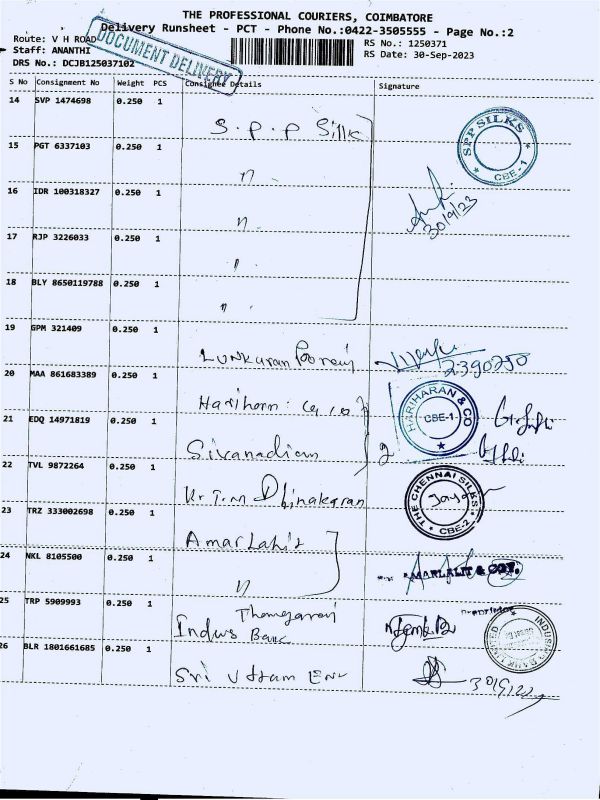 THE PROFESSIONAL COURIERS, COIMBATORE
Delivery Runsheet - PCT - Phone No.:0422-3505555 - Page No.:2
Route: V H ROAD
RS No.: 1250371
Staff: ANANTHI
RS Date: 30-Sep-2023
DRS No.: DCJB125037102
DOCUMENT DELIVERY
S No Consignment No Weight PCS Consignee Details Signature
14 SVP 1474698 0.250 1 S.P.P Silk
SPP SILKS CBE-1
15 PGT 6337103 0.250 1 "
16 IDR 100318327 0.250 1 "
30/9/23
17 RJP 3226033 0.250 1 "
18 BLY 8650119788 0.250 1 "
19 GPM 321409 0.250 1 Lunkaran
2390250
20 MAA 861683389 0.250 1
HARIHARAN & CO CBE-1
21 EDQ 14971819 0.250 1 2
22 TVL 9872264 0.250 1 Dhinakaran
THE CHENNAI SILKS CBE-2
Jaya
23 TRZ 333002698 0.250 1
24 NKL 8105500 0.250 1 "
25 TRP 5909993 0.250 1
Indus Bank
26 BLR 1801661685 0.250 1 Sri Uttam